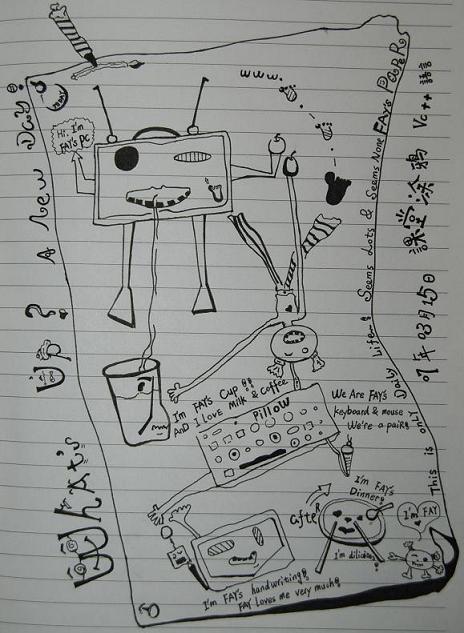 WhAt's Up? A new Day!
Hi, I'm
FAY's PC
www.
I'm FAY's Cup!!
AND I Love Milk & Coffee
Pillow
We Are FAY's
keyboard & mouse
We're a pair!
I'm FAY's
Dinner!
after
I'm dilicious
I'm
FAY
I'm FAY's handwriting!
FAY Loves me very much!
This is onLY Daily Life~! Seems Lots & Seems None FAY's PaPeR.
07年03月15日 课堂涂鸦 Vc++ 語言